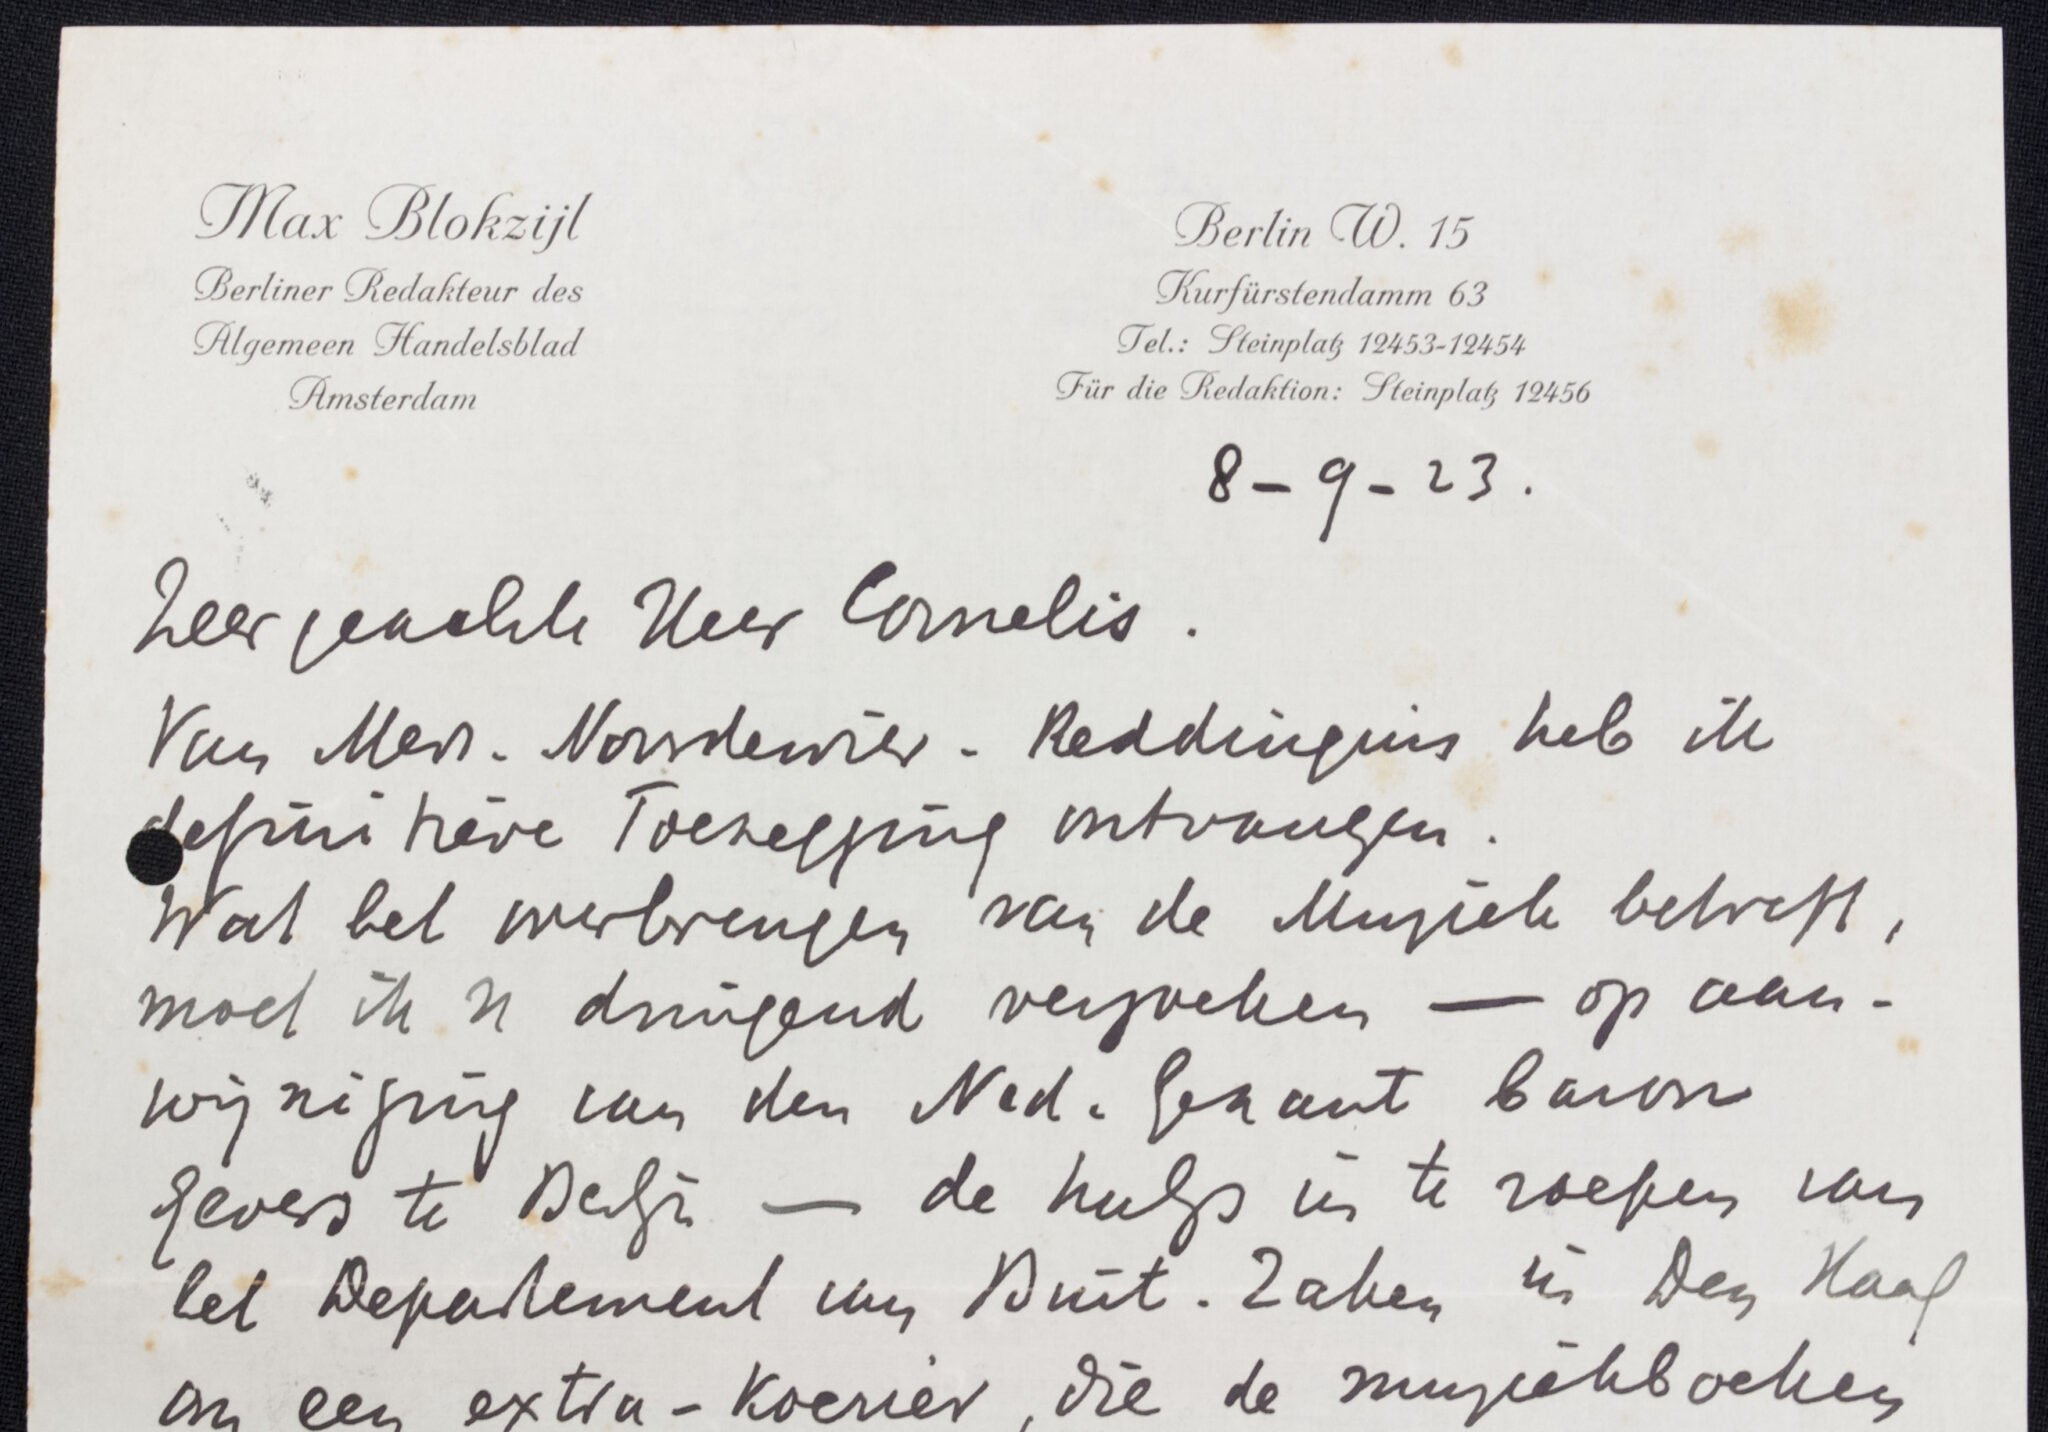 Max Blokzijl
Berliner Redakteur des
Algemeen Handelsblad
Amsterdam
Berlin W. 15
Kurfürstendamm 63
Tel.: Steinplatz 12453-12454
Für die Redaktion: Steinplatz 12456
8-9-23.
Zeer geachte Heer Cornelis.
Van Mevr. Noordewier-Reddingius heb ik
definitieve Toezegging ontvangen.
Wat het overbrengen van de Muziek betreft,
moet ik U dringend verzoeken — op aan-
wijziging van den Ned. Gezant baron
Gevers te Berlijn — de hulp in te roepen van
het Departement van Buit. Zaken in Den Haag
om een extra-Koerier, die de muziekboeken